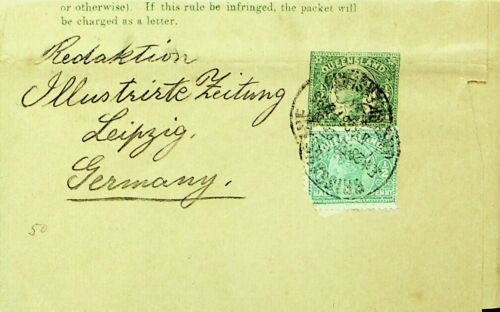 or otherwise). If this rule be infringed, the packet will
be charged as a letter.
Redaktion
Illustrirte Zeitung
Leipzig.
Germany.
QUEENSLAND
½
PENNY
50